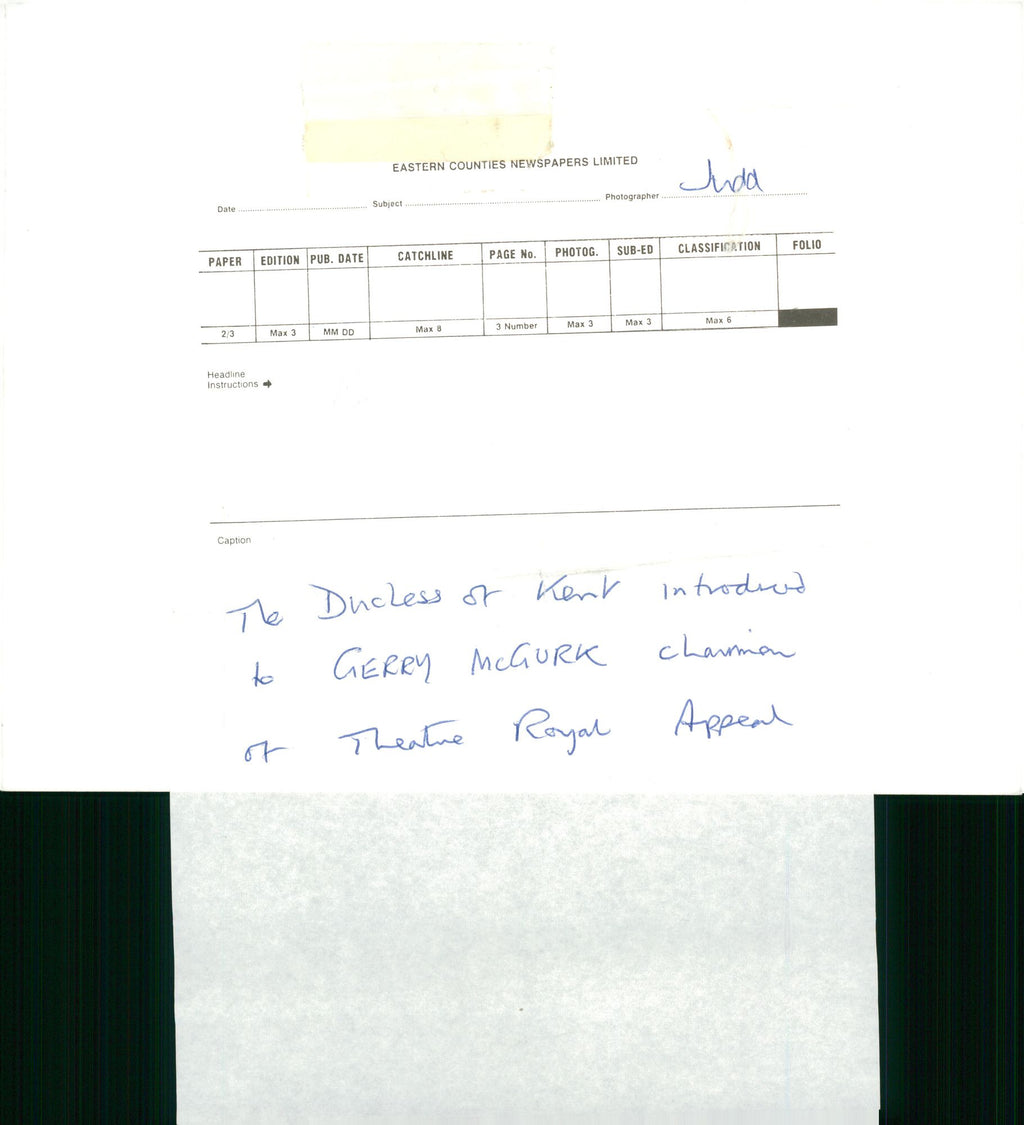 EASTERN COUNTIES NEWSPAPERS LIMITED
Date Subject Photographer Judd
PAPER EDITION PUB. DATE CATCHLINE PAGE No. PHOTOG. SUB-ED CLASSIFICATION FOLIO
2/3 Max 3 MM DD Max 8 3 Number Max 3 Max 3 Max 6
Headline
Instructions →
Caption
The Duchess of Kent introduced
to GERRY McGURK chairman
of Theatre Royal Appeal